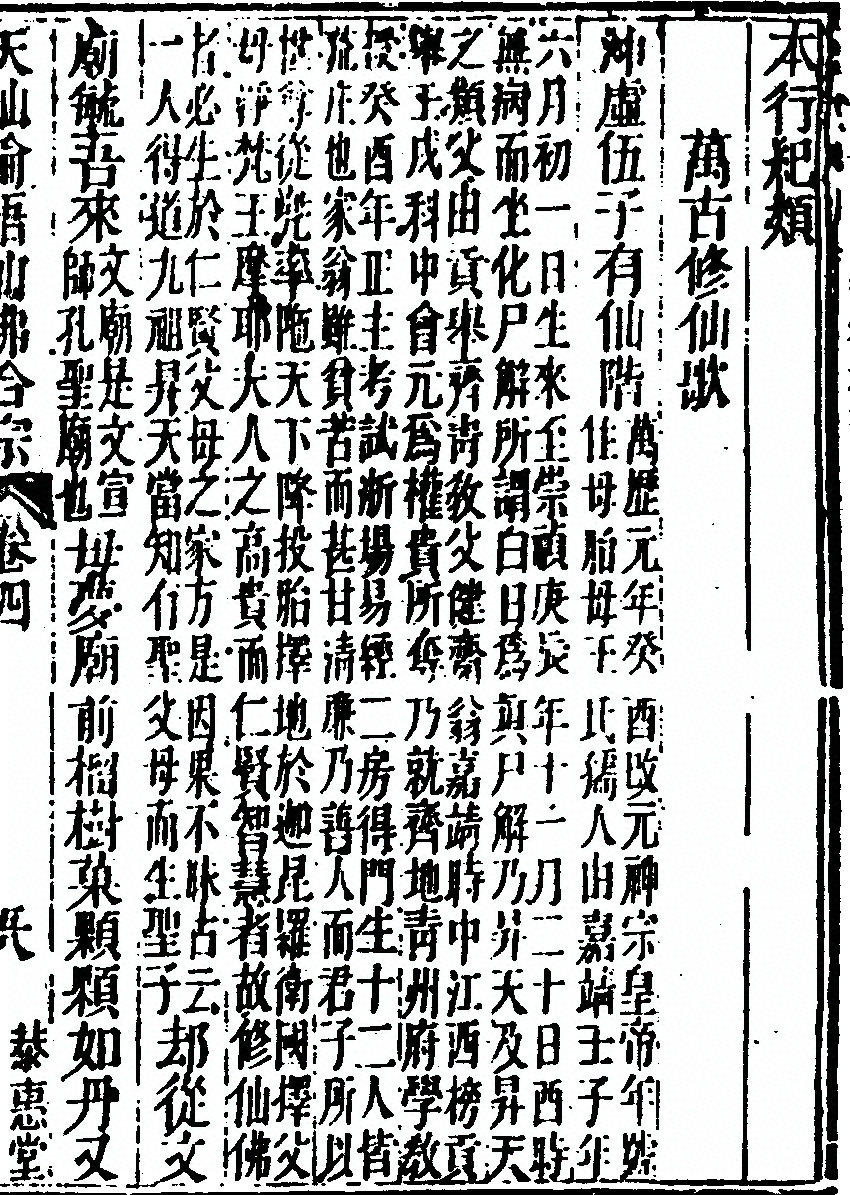 本行紀類
萬古修仙歌
沖虛伍子有仙階
萬歷元年癸酉改元神宗皇帝年號
住母胎母王氏孺人由嘉靖壬子年
六月初一日生來至崇禎庚辰年十一月二十日酉時
無病而坐化尸解所謂白日爲眞尸解乃昇天及昇天
之類父由貢舉齊嵵教父健齋翁嘉靖時中江西榜貢
舉壬戌科中會元爲權貴所奪乃就齊地青州府學教
授癸酉年正主考試浙場易經二房得門生十二人皆
疏庄也家翁雖貧苦而甚甘清廉乃善人而君子所以
世尊從兠率陁天下降投胎擇地於迦毘羅衛國擇父
母淨梵王摩耶夫人之高貴而仁賢智慧者故修仙佛
者必生於仁賢父母之家方是因果不昧古云
一人得道九祖昇天當知有聖父母而生聖子
却從文
廟毓吾來
文廟是文宣
師孔聖廟也
母夢廟前榴樹菓顆顆如丹又
天仙論語仙佛合宗 卷四 氏 恭惠堂